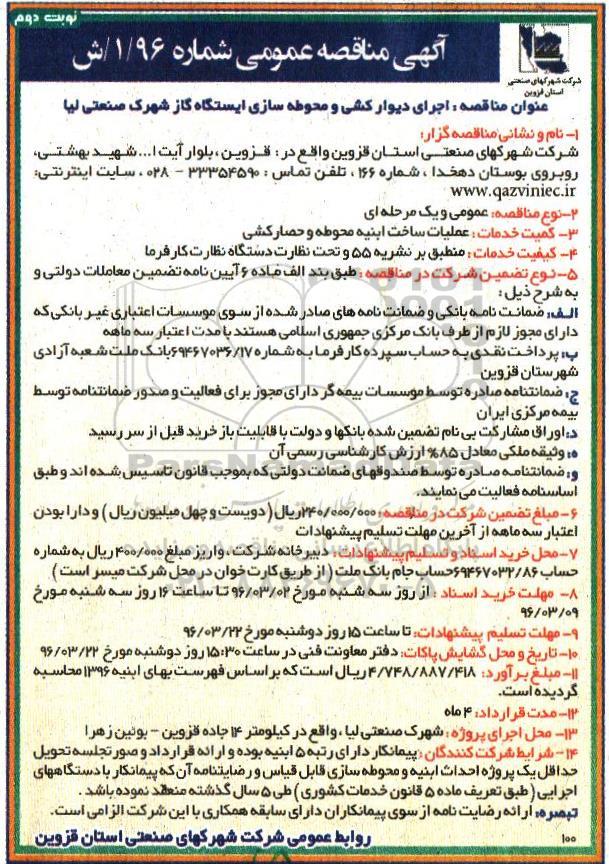 نوبت دوم
آگهی مناقصه عمومی شماره ۱/۹۶/ش
شرکت شهرکهای صنعتی
استان قزوین
عنوان مناقصه : اجرای دیوار کشی و محوطه سازی ایستگاه گاز شهرک صنعتی لیا
۱- نام و نشانی مناقصه گزار:
شرکت شهرکهای صنعتی استان قزوین واقع در : قزوین ، بلوار آیت ا... شهید بهشتی،
روبروی بوستان دهخدا ، شماره ۱۶۶ ، تلفن تماس : ۳۳۳۵۴۵۹۰ - ۰۲۸ ، سایت اینترنتی:
www.qazviniec.ir
۲-نوع مناقصه: عمومی و یک مرحله ای
۳- کمیت خدمات: عملیات ساخت ابنیه محوطه و حصارکشی
۴- کیفیت خدمات: منطبق بر نشریه ۵۵ و تحت نظارت دستگاه نظارت کارفرما
۵- نوع تضمین شرکت در مناقصه: طبق بند الف ماده ۶ آیین نامه تضمین معاملات دولتی و
به شرح ذیل :
الف: ضمانت نامه بانکی و ضمانت نامه های صادر شده از سوی موسسات اعتباری غیر بانکی که
دارای مجوز لازم از طرف بانک مرکزی جمهوری اسلامی هستند با مدت اعتبار سه ماهه
ب: پرداخت نقدی به حساب سپرده کارفرما به شماره ۶۹۴۶۷۰۳۶/۱۷بانک ملت شعبه آزادی
شهرستان قزوین
ج: ضمانتنامه صادره توسط موسسات بیمه گر دارای مجوز برای فعالیت و صدور ضمانتنامه توسط
بیمه مرکزی ایران
د: اوراق مشارکت بی نام تضمین شده بانکها و دولت با قابلیت باز خرید قبل از سر رسید
ه: وثیقه ملکی معادل ۸۵% ارزش کارشناسی رسمی آن
و: ضمانتنامه صادره توسط صندوقهای ضمانت دولتی که بموجب قانون تاسیس شده اند و طبق
اساسنامه فعالیت می نمایند.
۶- مبلغ تضمین شرکت در مناقصه: ۲۴۰/۰۰۰/۰۰۰ریال ( دویست و چهل میلیون ریال ) و دارا بودن
اعتبار سه ماهه از آخرین مهلت تسلیم پیشنهادات
۷- محل خرید اسناد و تسلیم پیشنهادات: دبیرخانه شرکت ، واریز مبلغ ۴۰۰/۰۰۰ ریال به شماره
حساب ۶۹۴۶۷۰۳۲/۸۶حساب جام بانک ملت ( از طریق کارت خوان در محل شرکت میسر است )
۸- مهلت خرید اسناد : از روز سه شنبه مورخ ۹۶/۰۳/۰۲ تا ساعت ۱۶ روز سه شنبه مورخ
۹۶/۰۳/۰۹
۹- مهلت تسلیم پیشنهادات: تا ساعت ۱۵ روز دوشنبه مورخ ۹۶/۰۳/۲۲
۱۰- تاریخ و محل گشایش پاکات: دفتر معاونت فنی در ساعت ۱۵:۳۰ روز دوشنبه مورخ ۹۶/۰۳/۲۲
۱۱- مبلغ برآورد: ۴/۷۴۸/۸۸۷/۴۱۸ ریال است که بر اساس فهرست بهای ابنیه ۱۳۹۶ محاسبه
گردیده است.
۱۲- مدت قرارداد: ۴ ماه
۱۳- محل اجرای پروژه : شهرک صنعتی لیا ، واقع در کیلومتر ۱۴ جاده قزوین - بوئین زهرا
۱۴- شرایط شرکت کنندگان : پیمانکار دارای رتبه ۵ ابنیه بوده و ارائه قرارداد و صورتجلسه تحویل
حداقل یک پروژه احداث ابنیه و محوطه سازی قابل قیاس و رضایتنامه آن که پیمانکار با دستگاههای
اجرایی ( طبق تعریف ماده ۵ قانون خدمات کشوری ) طی ۵ سال گذشته منعقد نموده باشد .
تبصره: ارائه رضایت نامه از سوی پیمانکاران دارای سابقه همکاری با این شرکت الزامی است.
۱۰۰
روابط عمومی شرکت شهرکهای صنعتی استان قزوین